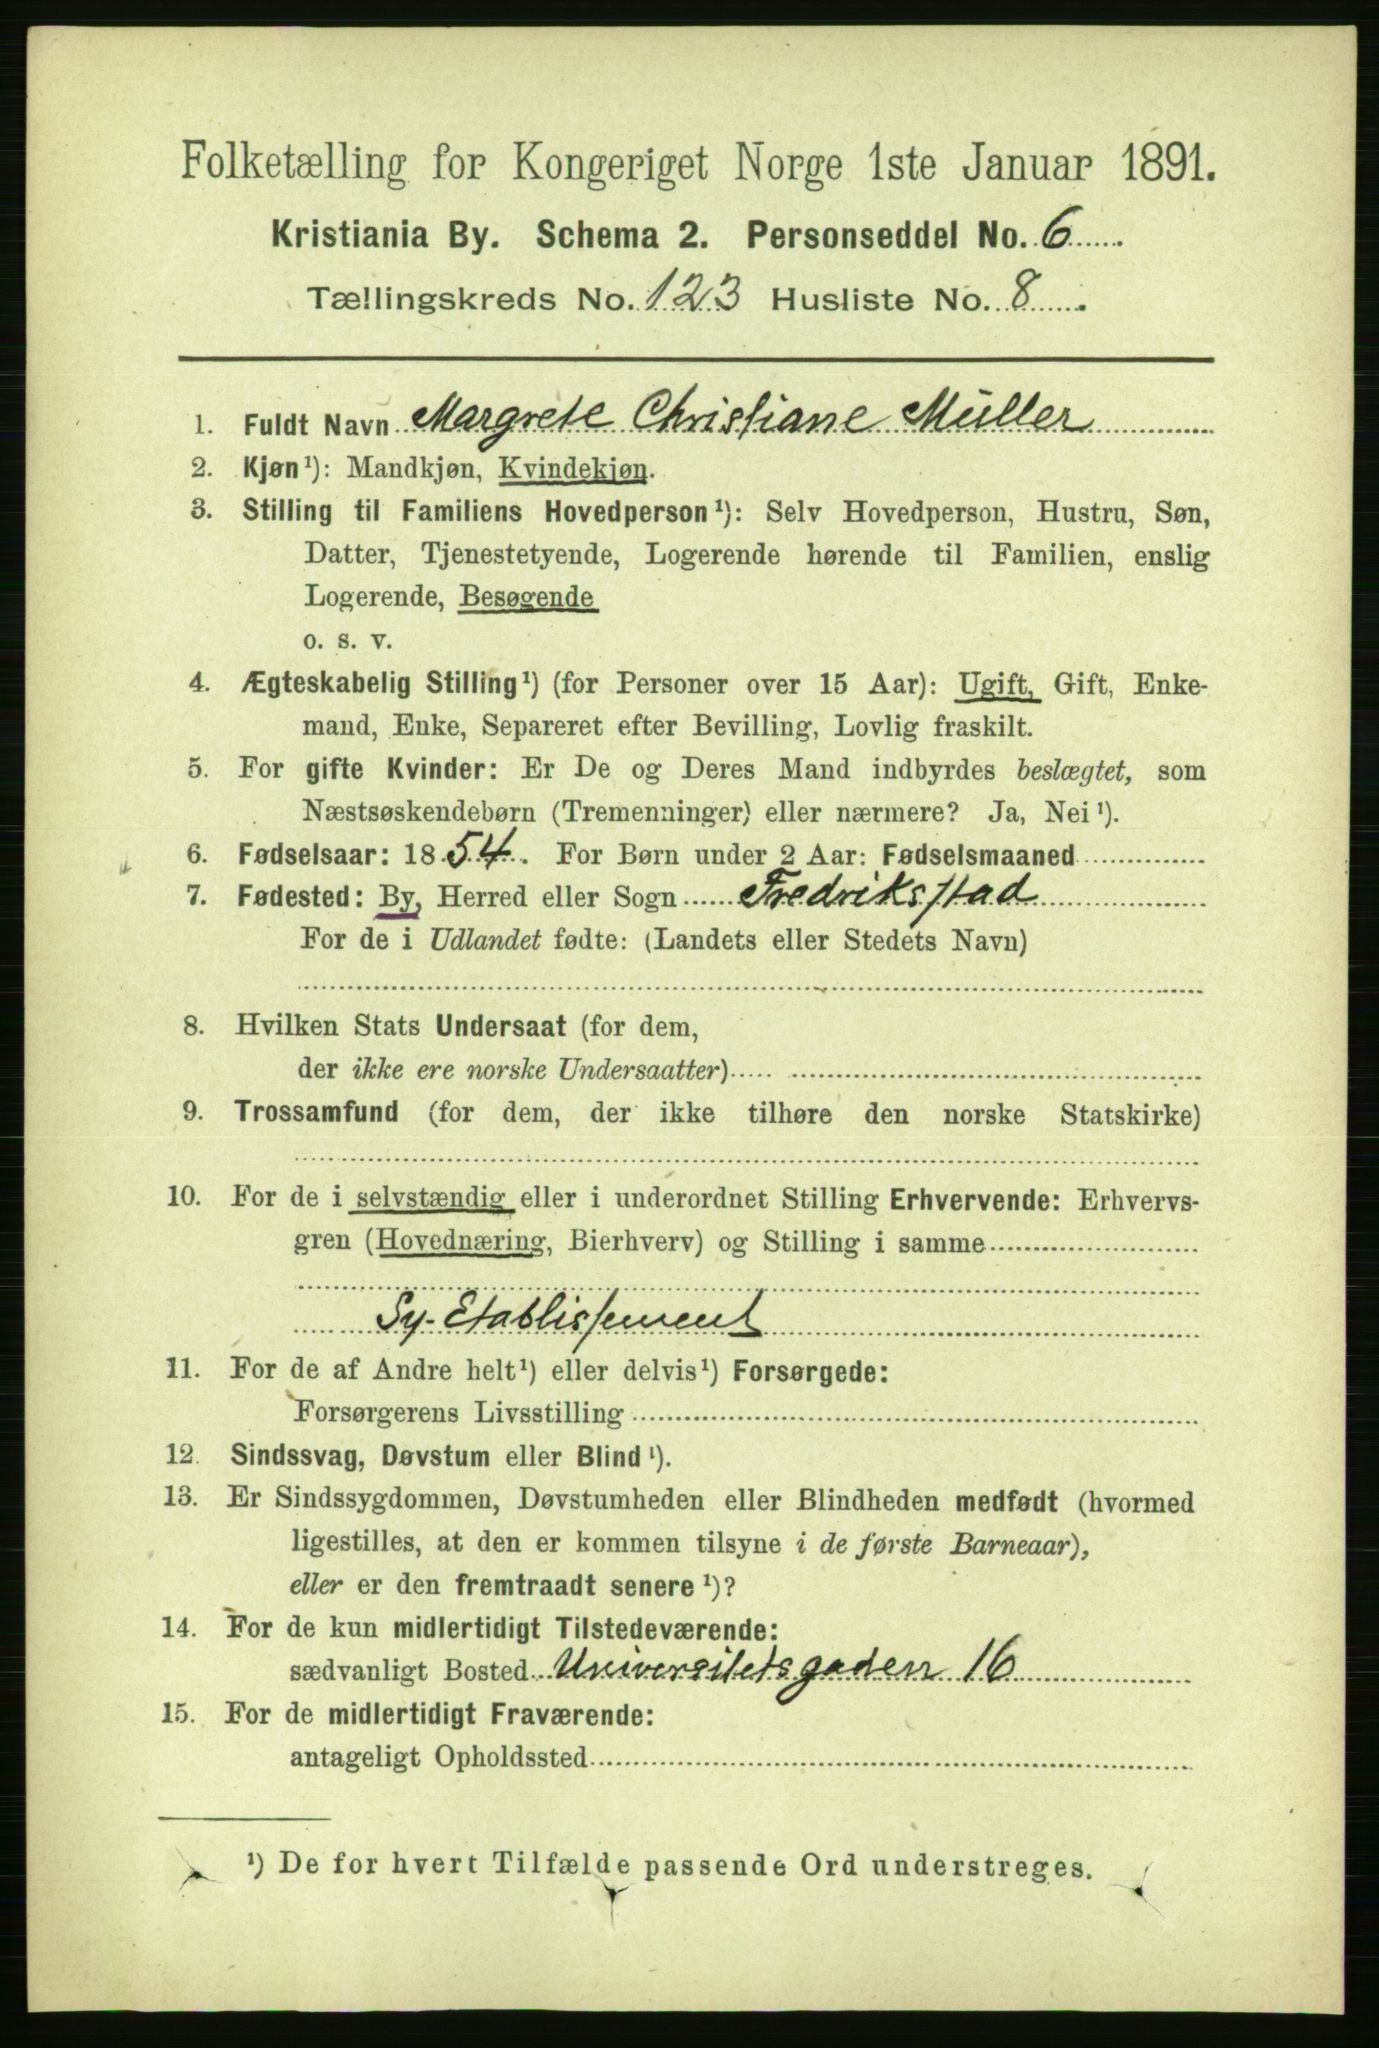 Folketælling for Kongeriget Norge 1ste Januar 1891.
Kristiania By. Schema 2. Personseddel No. 6
Tællingskreds No. 123 Husliste No. 8
1. Fuldt Navn Margrete Christiane Müller
2. Kjøn¹): Mandkjøn, Kvindekjøn.
3. Stilling til Familiens Hovedperson¹): Selv Hovedperson, Hustru, Søn,
Datter, Tjenestetyende, Logerende hørende til Familien, enslig
Logerende, Besøgende
o. s. v.
4. Ægteskabelig Stilling¹) (for Personer over 15 Aar): Ugift, Gift, Enke-
mand, Enke, Separeret efter Bevilling, Lovlig fraskilt.
5. For gifte Kvinder: Er De og Deres Mand indbyrdes beslægtet, som
Næstsøskendebørn (Tremenninger) eller nærmere? Ja, Nei¹).
6. Fødselsaar: 1854. For Børn under 2 Aar: Fødselsmaaned
7. Fødested: By, Herred eller Sogn Fredriksstad
For de i Udlandet fødte: (Landets eller Stedets Navn)
8. Hvilken Stats Undersaat (for dem,
der ikke ere norske Undersaatter)
9. Trossamfund (for dem, der ikke tilhøre den norske Statskirke)
10. For de i selvstændig eller i underordnet Stilling Erhvervende: Erhvervs-
gren (Hovednæring, Bierhverv) og Stilling i samme
Sy-Etablissement
11. For de af Andre helt¹) eller delvis¹) Forsørgede:
Forsørgerens Livsstilling
12. Sindssvag, Døvstum eller Blind¹).
13. Er Sindssygdommen, Døvstumheden eller Blindheden medfødt (hvormed
ligestilles, at den er kommen tilsyne i de første Barneaar),
eller er den fremtraadt senere¹)?
14. For de kun midlertidigt Tilstedeværende:
sædvanligt Bosted Universitetsgaden 16
15. For de midlertidigt Fraværende:
antageligt Opholdssted
¹) De for hvert Tilfælde passende Ord understreges.